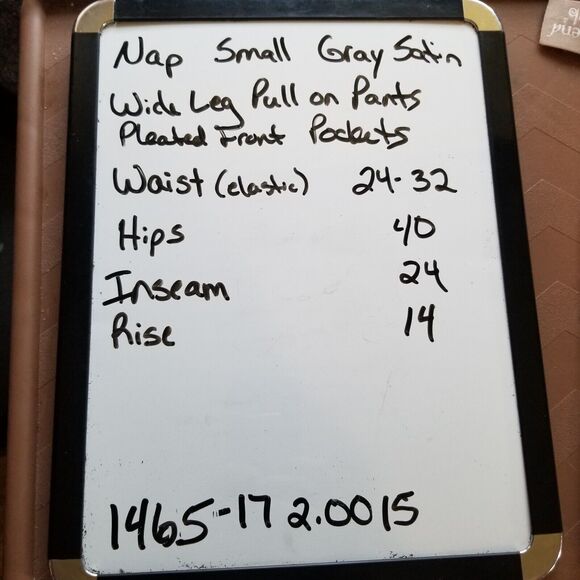 Nap Small Gray Satin
Wide Leg Pull on Pants
Pleated Front Pockets
Waist (elastic) 24-32
Hips 40
Inseam 24
Rise 14
1465-17 2.0015